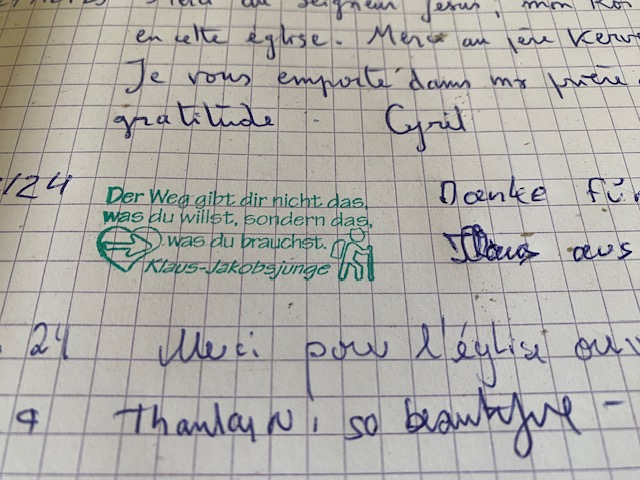 au Seigneur Jésus, mon Roi
en cette église. Merci au père
Je vous emporte dans ma prière.
gratitude Cyril
/124
Der Weg gibt dir nicht das,
was du willst, sondern das,
was du brauchst.
Klaus-Jakobsjunge
Danke für
Klaus aus
24 Merci pour l'église
so